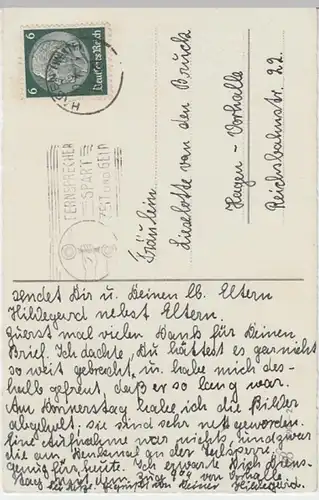 6 Deutsches Reich 6
FERNSPRECHER
SPART
ZEIT UND GELD
Fräulein
Lieselotte van den Bruck
Hagen-Vorhalle
Reichsbahnstr. 22.
sendet Dir u. Deinen lb. Eltern
Hildegard nebst Eltern.
Zuerst mal vielen Dank für Deinen
Brief. Ich dachte, Du hättest es garnicht
so weit gebracht, u. habe mich des-
halb gefreut daß er so lang war.
Am Donnerstag habe ich die Bilder
abgeholt, sie sind sehr nett geworden.
Eine Aufnahme war nichts, und zwar
die am Denkmal an der Talsperre.
Genug für heute. Ich erwarte Dich Diens-
tag mit dem Zuge von Vorhalle
Sei herzl. gegrüßt von Deiner Hildegard.